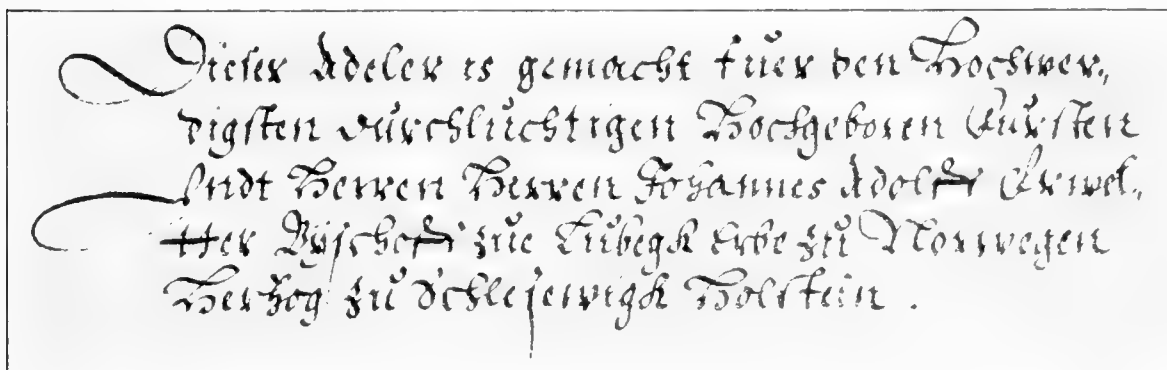 Dieser Adeler is gemacht fuer den Hochwer„
digsten durchluchtigen Hochgeboren Fursten
Undt Herren Herren Johannes Adolff Erwel„
tter Byschoff zue Lubegk Erbe zu Norwegen
Herzog zu Schlejewigk Holstein .